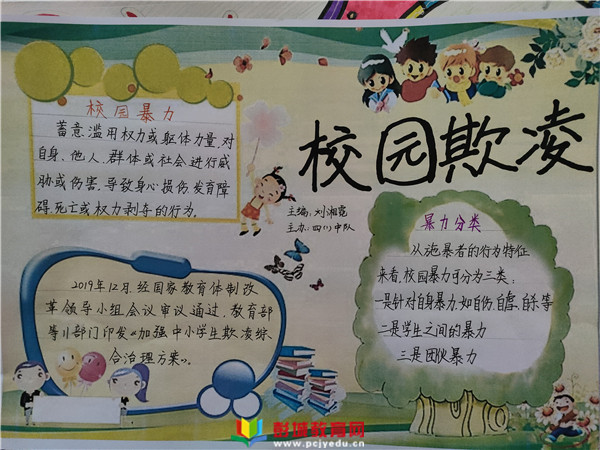 校园欺凌
校园暴力
蓄意滥用权力或躯体力量,对
自身、他人、群体或社会进行威
胁或伤害,导致身心损伤、发育障
碍、死亡或权力剥夺的行为。
主编:刘湘霓
主办:四(1)中队
暴力分类
从施暴者的行为特征
来看,校园暴力可分为三类:
一是针对自身暴力,如自伤、自虐、自杀等
二是学生之间的暴力
三是团伙暴力
2019年12月,经国家教育体制改
革领导小组会议审议通过,教育部
等11部门印发《加强中小学生欺凌综
合治理方案》。
彭城教育网
www.pcjyedu.cn